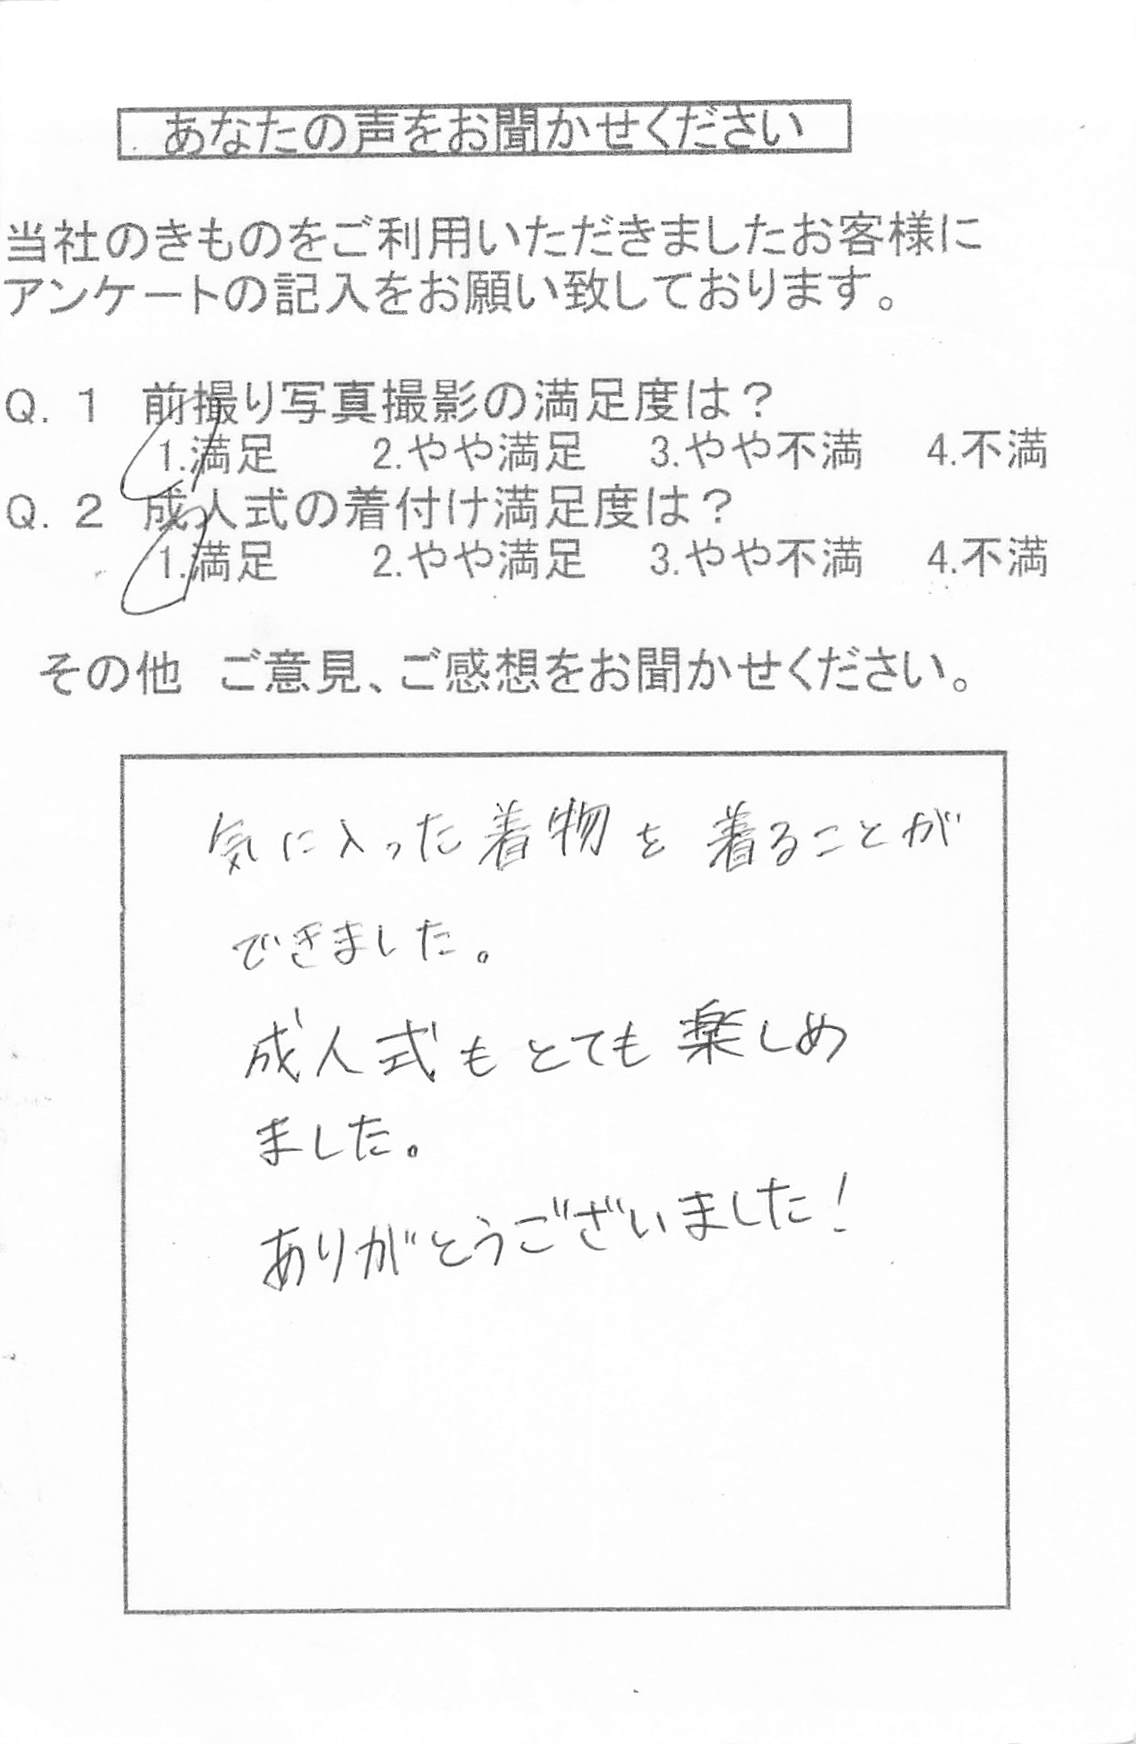 あなたの声をお聞かせください
当社のきものをご利用いただきましたお客様に
アンケートの記入をお願い致しております。
Q.1 前撮り写真撮影の満足度は？
1.満足 2.やや満足 3.やや不満 4.不満
Q.2 成人式の着付け満足度は？
1.満足 2.やや満足 3.やや不満 4.不満
その他 ご意見、ご感想をお聞かせください。
気に入った着物を着ることが
できました。
成人式もとても楽しめ
ました。
ありがとうございました!